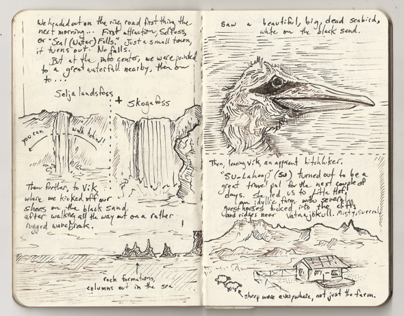 We headed out on the ring road first thing the
next morning... First attraction, Selfoss,
or "Seal (Water) Falls." Just a small town,
it turns out. No falls.
But at the info center, we were pointed
to a great waterfall nearby, then
to...
Seljalandsfoss
+ Skogafoss
you can walk behind!
Then further, to Vik
where we kicked off our
shoes on the black sand
after walking all the way out on a rather
rugged
rock formations,
columns out in the sea
Saw a beautiful, big, dead seabird,
white on the black sand.
Then, leaving Vik, an apparent hitchhiker.
turned out to be a
great travel pal for the next couple of
days. She led us to Litla Hof,
an idyllic farm
tucked into the cliffs
near Vatnajökull. Misty,
sheep were everywhere, not just the farm.